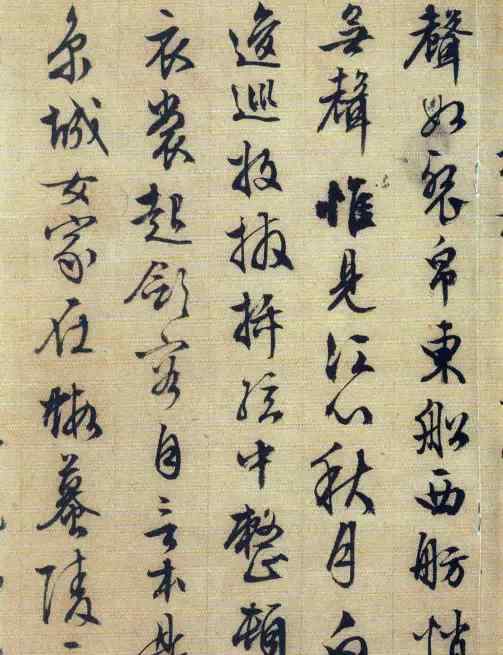 聲如裂帛東船西舫悄
無聲惟見江心秋月白
逡巡放撥插絃中整頓
衣裳起斂容自言本是
京城女家在蝦蟇陵